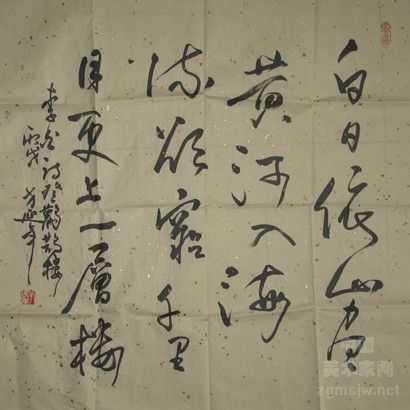 白日依山尽
黄河入海
流欲窮千里
目更上一層樓
李白诗登鸛鵲樓
丙戌
美术家网
zgmsjw.net